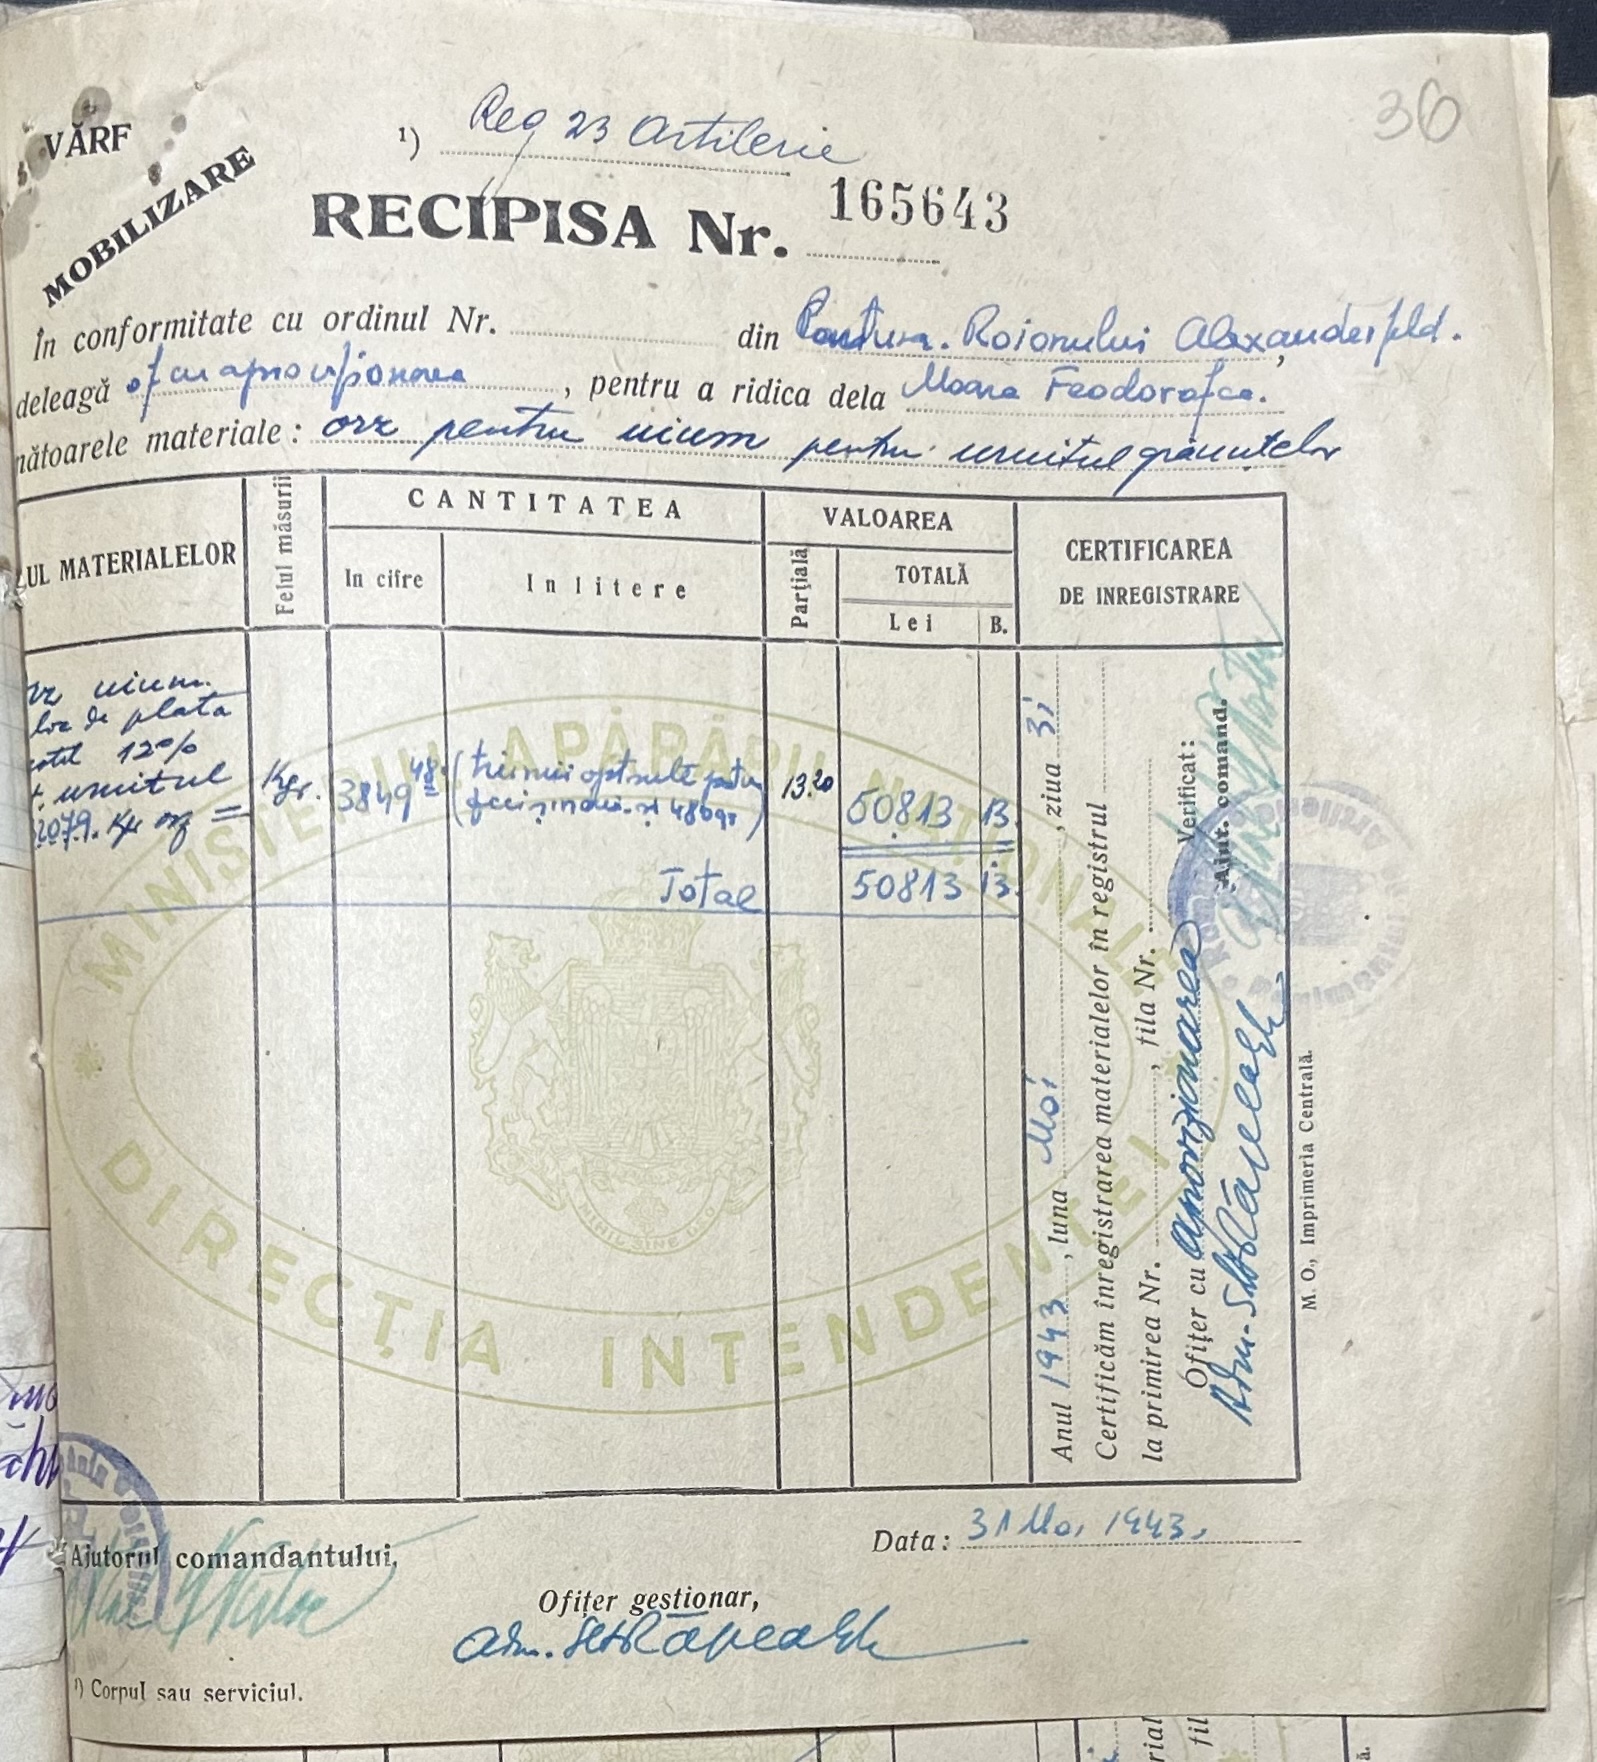 36
VĂRF
MOBILIZARE
¹) Reg 23 Artilerie
RECIPISA Nr. 165643
În conformitate cu ordinul Nr. din Raionului Alexanderfeld.
deleagă of cu aprovizionarea, pentru a ridica dela Moara Feodorofca.
nătoarele materiale: orz pentru uium pentru uruitul grăunțelor
UL MATERIALELOR
Felul măsurii
CANTITATEA
In cifre
In litere
VALOAREA
Parțială
TOTALĂ
Lei
B.
CERTIFICAREA
DE INREGISTRARE
uium
loc de plata
12%
uruitul
2079. Kgr orz =
Kgr.
3849 48
(trei mii opt sute patru
zeci și nouă și 48 gr)
13.20
50813 13.
Total 50813 13.
Anul 1943, luna Mai, ziua 31
Certificăm înregistrarea materialelor în registrul
la primirea Nr. , fila Nr.
Verificat:
Ofițer cu aprovizionarea
Ajut. comand.
Adm.
M. O., Imprimeria Centrală.
MINISTERUL APĂRĂRII NAȚIONALE
DIRECȚIA INTENDENȚEI
NIHIL SINE DEO
Data: 31 Mai 1943.
Ajutorul comandantului,
Ofițer gestionar,
Adm.
¹) Corpul sau serviciul.